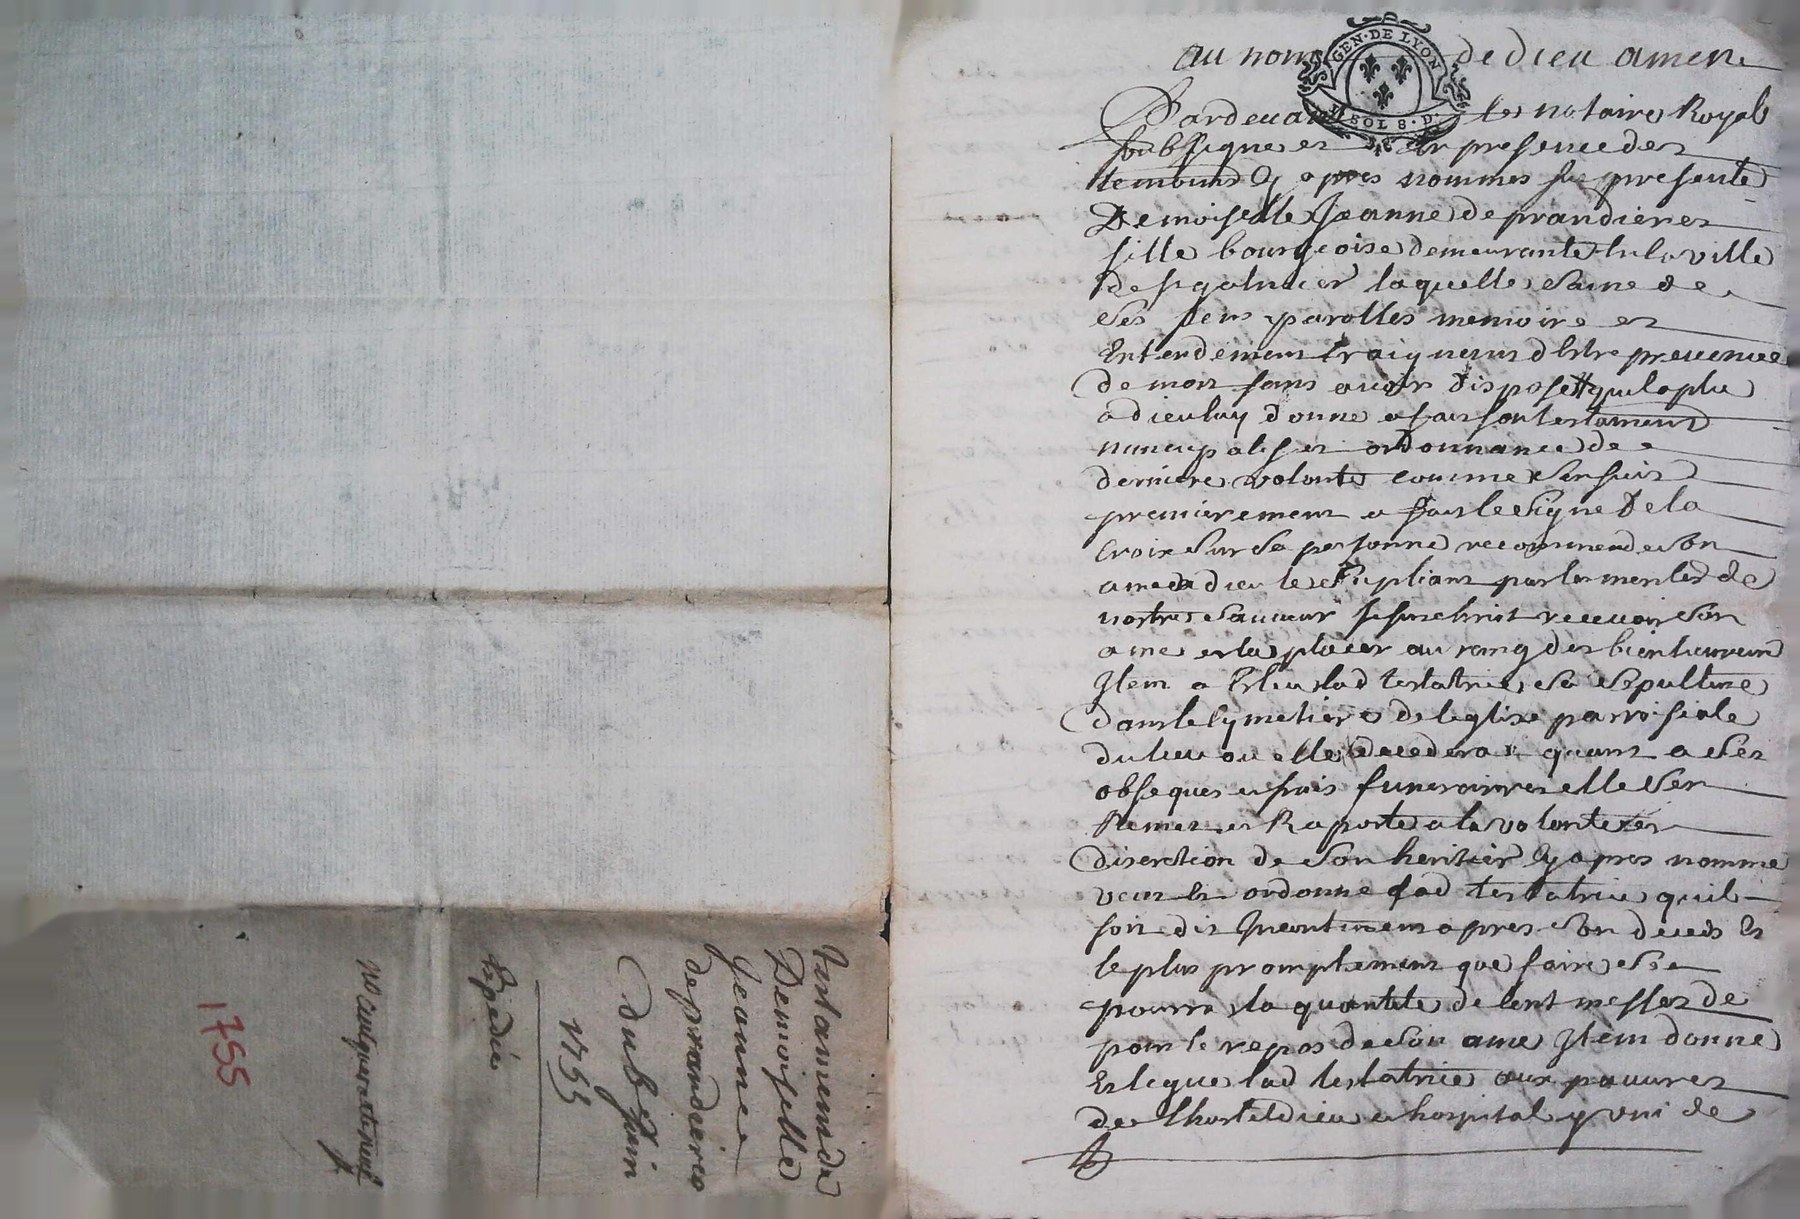 au nom de dieu amen
GEN·DE LYON
SOL 8·D
Pardevant les notaire Royal
soubsigne et en presence des
temoins cy apres nommes fut presente
Demoiselle Jeanne deprandieres
fille bourgeoise demeurante en la ville
de st galmier laquelle saine de
ses sens parolles memoire et
Entendement craignant dEstre prevenue
de mort sans avoir dispose quil a plu
a dieu luy donne a fait son testament
nuncupatif et ordonnance de
derniere volonte comme sensuit
premierement a fait le signe De la
Croix sur sa personne recommende son
ame a dieu le supliant par les merites de
nostre sauveur Jesuschrist recevoir son
ame et la placer au rang des bienheureux
Item a Esleu lad testatrice sa sepulture
dans le cymetiere de leglise parroissiale
du lieu ou elle decedera quant a ses
obseques et frais funeraires elle sen
Remet et Raporte a la volonte et
discretion de son heritier cy apres nomme
veut et ordonne lad testatrice quil
soit dit Incontinent apres son deceds Et
le plus promptement que faire se
pourra la quantite de Cent messes de
pour le repos de son ame Item donne
Et legue lad testatrice aux pauvres
de lhosteldieu et hospital y uni de
Testament de
Demoiselle
Jeanne
deprandieres
du 6e Juin
1755
Expedié
1755